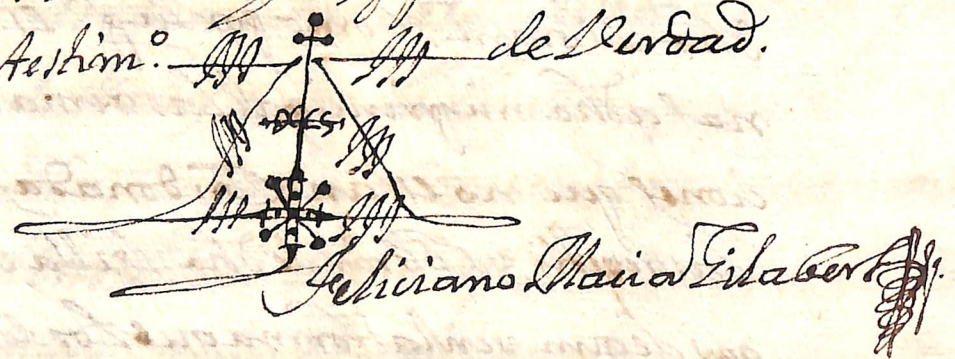 testim.º de Verdad.
Feliciano Macia Gilabert